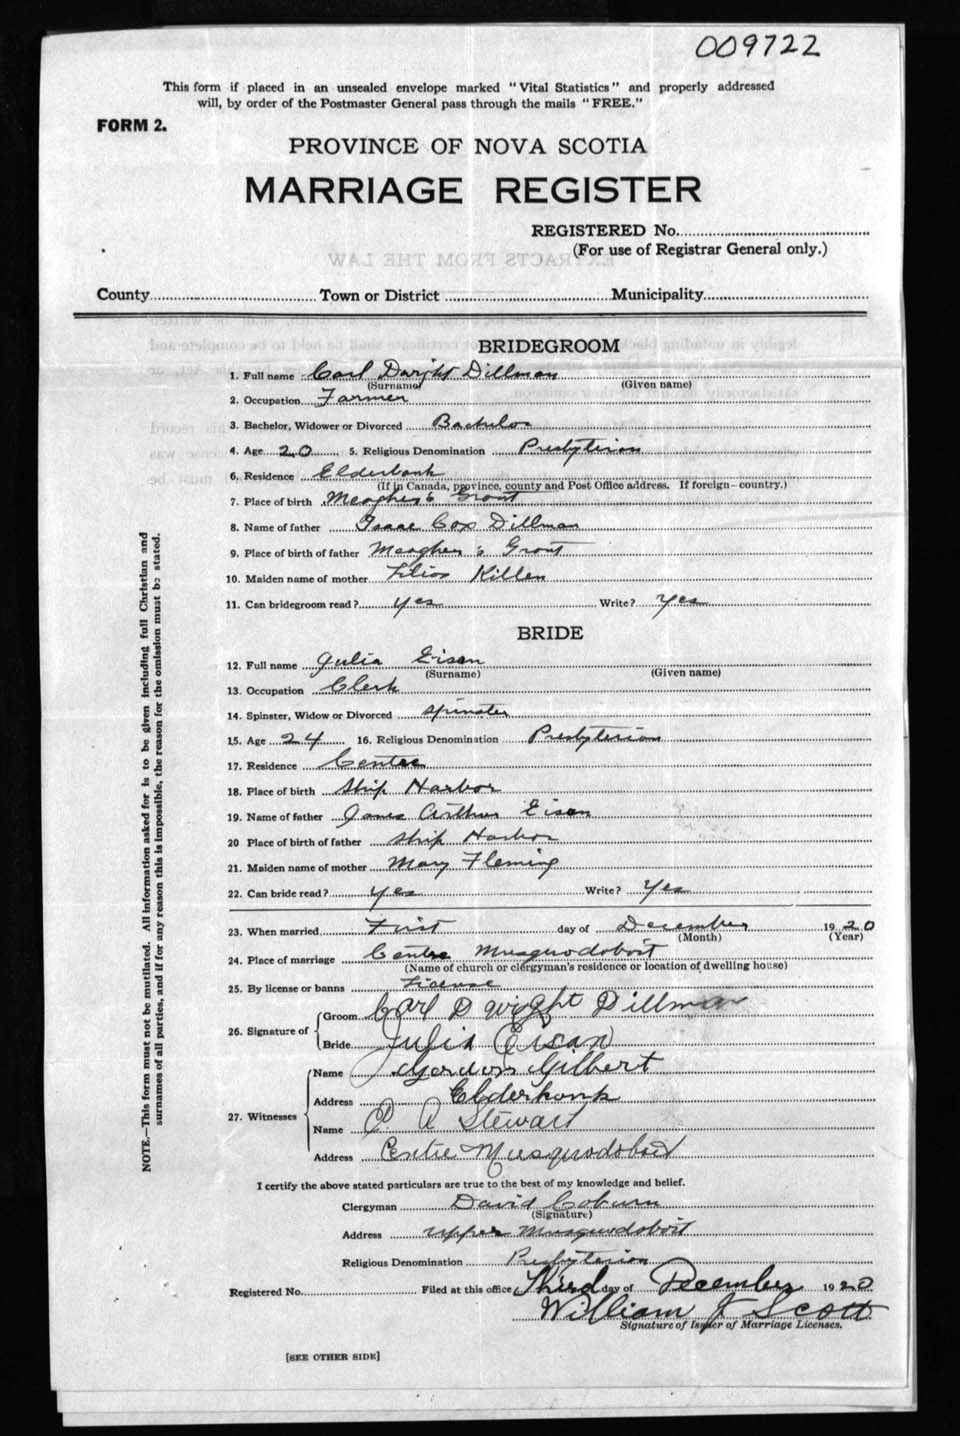 009722
This form if placed in an unsealed envelope marked "Vital Statistics" and properly addressed
will, by order of the Postmaster General pass through the mails "FREE."
FORM 2.
PROVINCE OF NOVA SCOTIA
MARRIAGE REGISTER
REGISTERED No.
(For use of Registrar General only.)
EXTRACTS FROM THE LAW
County Town or District Municipality
BRIDEGROOM
1. Full name Carl Dwight Dillman
(Surname) (Given name)
2. Occupation Farmer
3. Bachelor, Widower or Divorced Bachelor
4. Age 20 5. Religious Denomination Presbyterian
6. Residence Elderbank
(If in Canada, province, county and Post Office address. If foreign—country.)
7. Place of birth Meagher's Grant
8. Name of father Isaac Cox Dillman
9. Place of birth of father Meagher's Grant
10. Maiden name of mother Killen
11. Can bridegroom read? yes Write? Yes
BRIDE
12. Full name Julia Eisan
(Surname) (Given name)
13. Occupation Clerk
14. Spinster, Widow or Divorced Spinster
15. Age 24 16. Religious Denomination Presbyterian
17. Residence Centre
18. Place of birth Ship Harbor
19. Name of father James Arthur Eisan
20 Place of birth of father Ship Harbor
21. Maiden name of mother Mary Fleming
22. Can bride read? yes Write? Yes
23. When married First day of December 1920
(Month) (Year)
24. Place of marriage Centre Musquodoboit
(Name of church or clergyman's residence or location of dwelling house)
25. By license or banns License
26. Signature of Groom Carl Dwight Dillman
Bride Julia Eisan
27. Witnesses Name Gordon Gilbert
Address Elderbank
Name A Stewart
Address Centre Musquodoboit
I certify the above stated particulars are true to the best of my knowledge and belief.
Clergyman David Coburn
(Signature)
Address Upper Musquodoboit
Religious Denomination Presbyterian
Registered No. Filed at this office Third day of December 1920
William J Scott
Signature of Issuer of Marriage Licenses.
[SEE OTHER SIDE]
NOTE.—This form must not be mutilated. All information asked for is to be given including full Christian and
surnames of all parties, and if for any reason this is impossible, the reason for the omission must be stated.